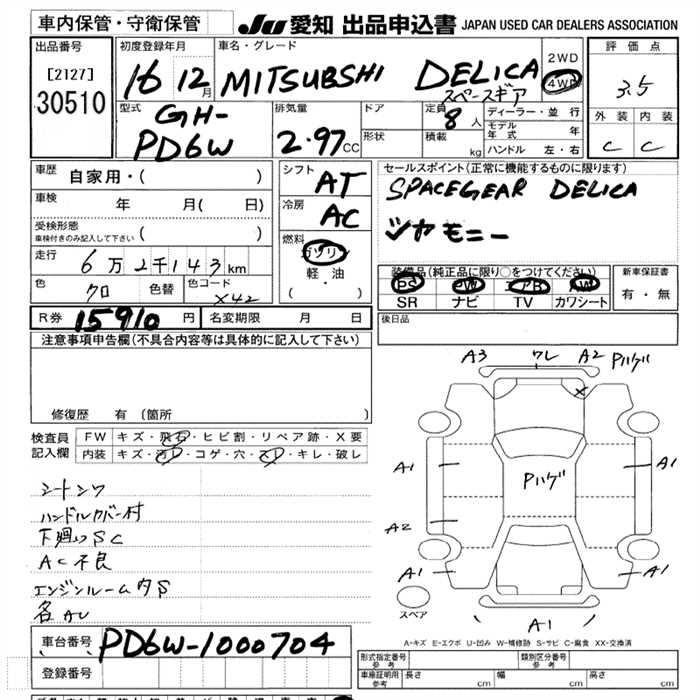 車内保管・守衛保管
JU 愛知 出品申込書 JAPAN USED CAR DEALERS ASSOCIATION
出品番号
[2127]
30510
初度登録年月
16 12月
車名・グレード
MITSUBSHI DELICA
スペースギア
2WD
4WD
評価点
3.5
外装 内装
C C
型式
GH-
PD6W
排気量
2.97CC
ドア
形状
定員 8人
積載 kg
ディーラー・並行
モデル年式 年
ハンドル 左・右
車歴
自家用・( )
車検
年 月( 日)
受検形態
車検付きのみ記入して下さい ( )
走行
6万2千143km
色 クロ
色替
色コード
X42
シフト AT
冷房 AC
燃料
ガソリン
軽・油
( )
セールスポイント(正常に機能するものに限ります)
SPACEGEAR DELICA
ジャモニー
装備品(純正品に限り○をつけてください)
PS PW エアB AW
SR ナビ TV カワシート
新車保証書
有・無
R券 15910円
名変期限 月 日
後日品
注意事項申告欄(不具合内容等は具体的に記入して下さい)
修復歴 有(箇所
検査員
記入欄
FW キズ・飛石・ヒビ割・リペア跡・X要
内装 キズ・汚レ・コゲ・穴・スレ・キレ・破レ
シートシワ
ハンドルカバー付
下廻りSC
AC不良
エンジンルーム内S
各AU
A3 ワレ A2 Pハゲ
X
A1 A1
Pハゲ
A2
A1 A1
A1
スペア
A-キズ E-エクボ U-凹み W-補修跡 S-サビ C-腐食 XX-交換済
車台番号
PD6W-1000704
登録番号
形式指定番号
参考
類別区分番号
参考
車庫証明用
参考
長さ 幅 高さ